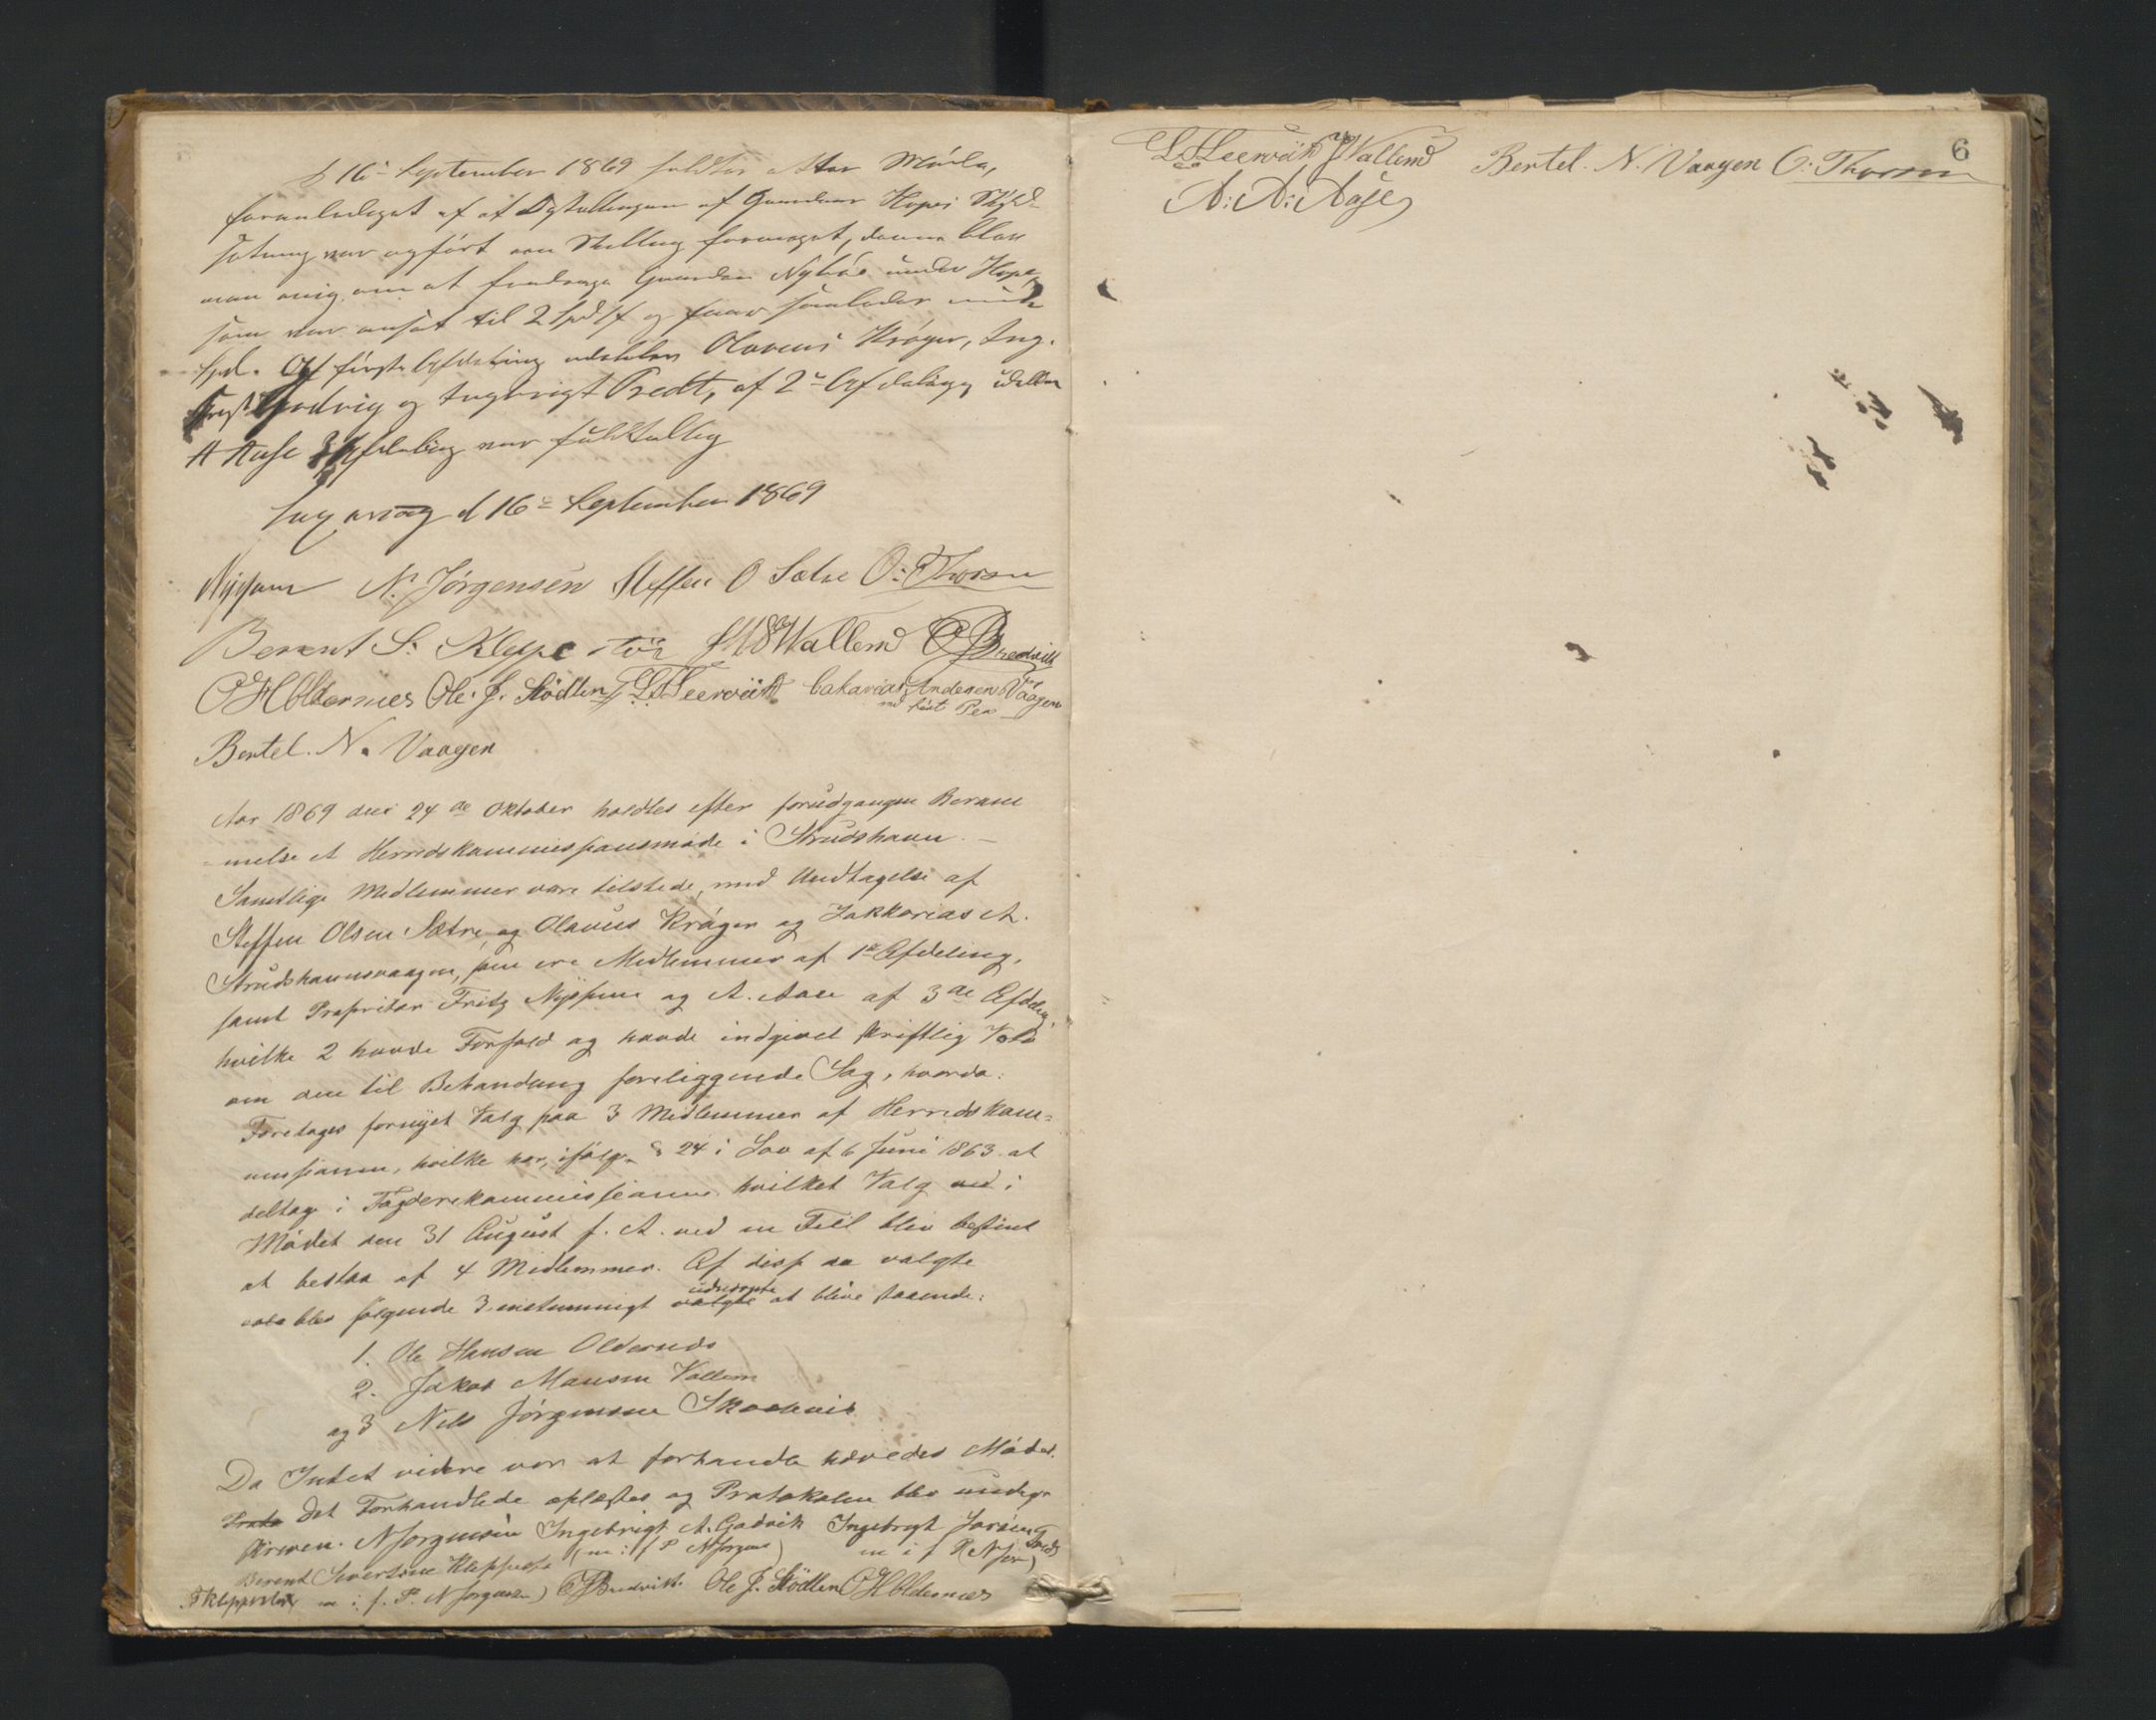 d 16de September 1869 holdtes atter Møde,
foranlediget af at af Gaarden Hopes Skyld-
sætning var opført een Skilling formeget, denne blev
man enig om at fradrage Gaarden under Hope,
som var ansat til 2 og faar saaledes
Spd. Af første Afdeling udeblev Olavus Krøger, Ing.
Godvig og Ingebrigt Bredt, af 2den Afdeling udeblev
A Aase 3 Afdeling var fuldtallig
d 16de September 1869
N. Jørgensen Steffen O Sætre O: Thorsen
Berent S. Kleppestø J M Wallem Bredvik
O H Oldernes Ole. J. Stødlen L. L. Leervik Cakarias Andersen Vaagen
med ført Pen
Bertel. N. Vaagen
Aar 1869 den 24de Oktober holdtes efter forudgangen Beram
melse et Herredskommissionsmøde i Strudshavn.
Samtlige Medlemmer vare tilstede, med Undtagelse af
Steffen Olsen Sætre, og Olavus Krøger og Zakkarias A.
Strudshavnsvaagen, som ere Medlemmer af 1ste Afdeling,
samt Proprietær Fritz og A. Aase af 3de Afdeling,
hvilke 2 havde Forfald og havde indgivet skriftlig
om den til Behandling foreliggende Sag, hvorda:
Foretages fornyet Valg paa 3 Medlemmer af Herredskom=
missionen, hvilke har, ifølge § 24 i Lov af 6 Juni 1863. at
deltage i Fogderikommissionen hvilket Valg ved i
Mødet den 31 August f. A. ved en Feil blev bestemt
at bestaa af 4 Medlemmer. Af disse da valgte
blev følgende 3 enstemmigt valgte udseede at blive staaende:
1. Ole Hansen Oldernes
2. Jakob Monsen Vallem
og 3 Nils Jørgensen Skaalevik
Da Intet videre var at forhandle hævedes Mødet.
Proto Det Forhandlede oplæstes og Protokolen blev underskr
kreven. N Jørgensen Ingebrigt A. Godvik Ingebregt
Berent Sivertsen Kleppestø (m: i f P N Jørgens) m i f P (N Jør)
Kleppestø m i. f. P. N Jørgensen) Bredvik. Ole J. Stødlen O H Oldernes
6
L. L. Leervik J M Wallem Bertel. N. Vaagen O: Thorsen
A: A: Aase